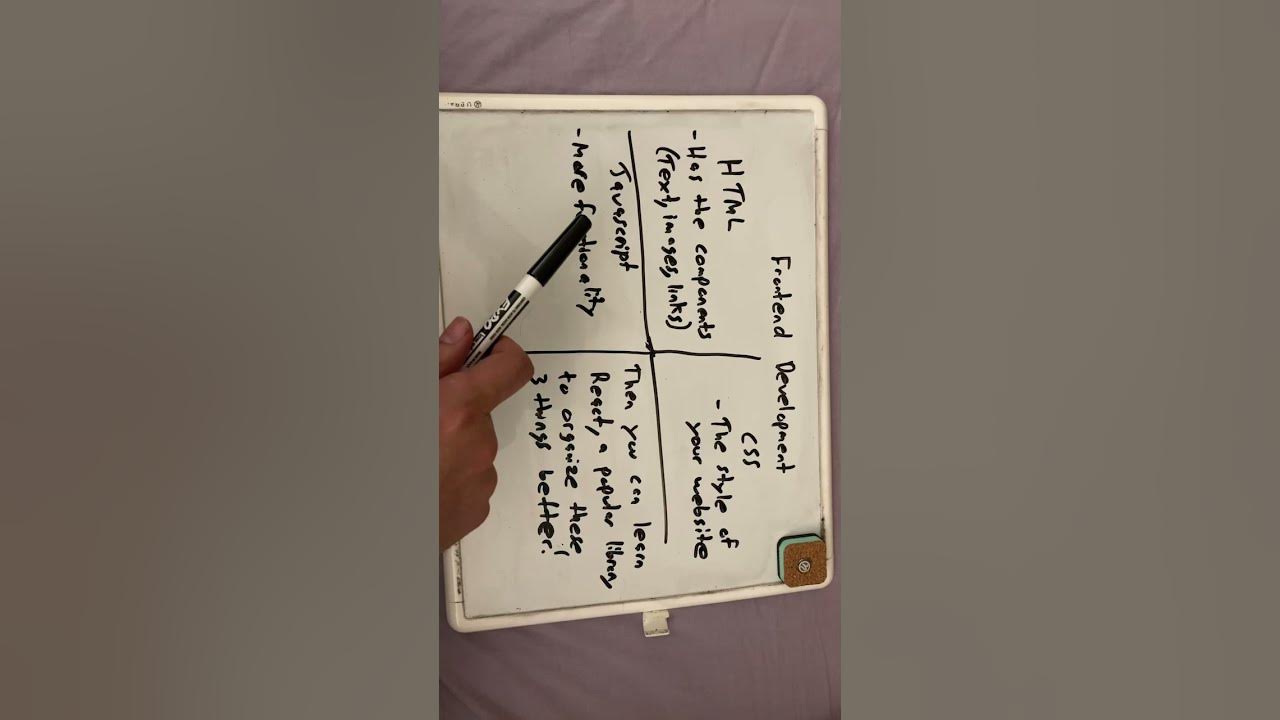 Frontend Development
HTML
- Has the components
(Text, images, links)
CSS
- The style of
your website
Javascript
- More
Then you can learn
React, a popular library
to organize these
3 things better!
EXPO